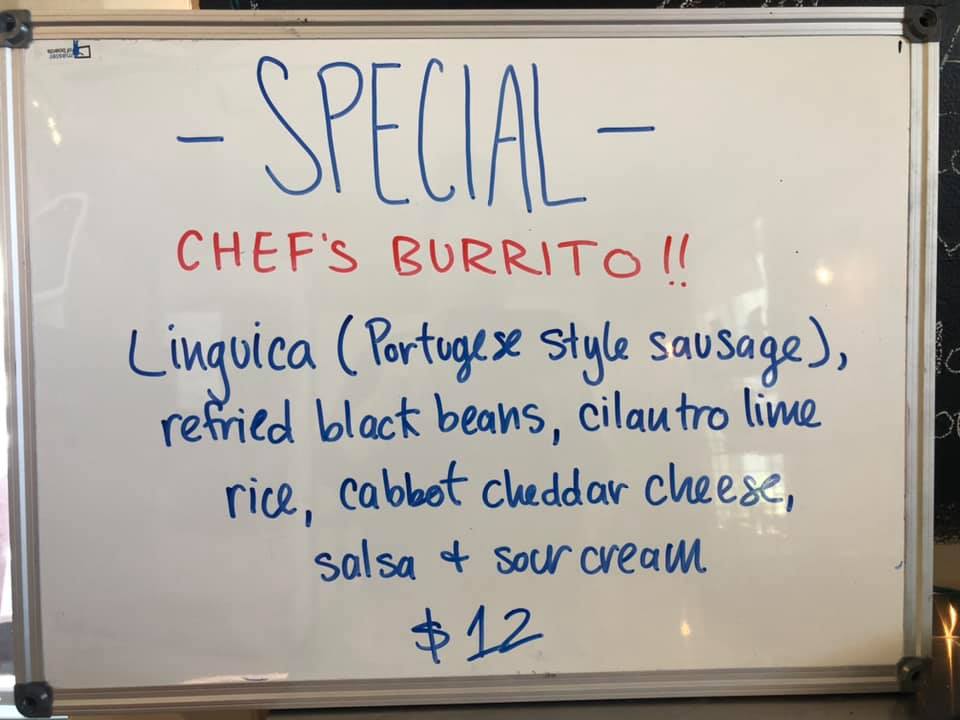 - SPECIAL -
CHEF'S BURRITO!!
Linguica (Portugese style sausage),
refried black beans, cilantro lime
rice, cabbot cheddar cheese,
salsa + sour cream
$12
master
of boards